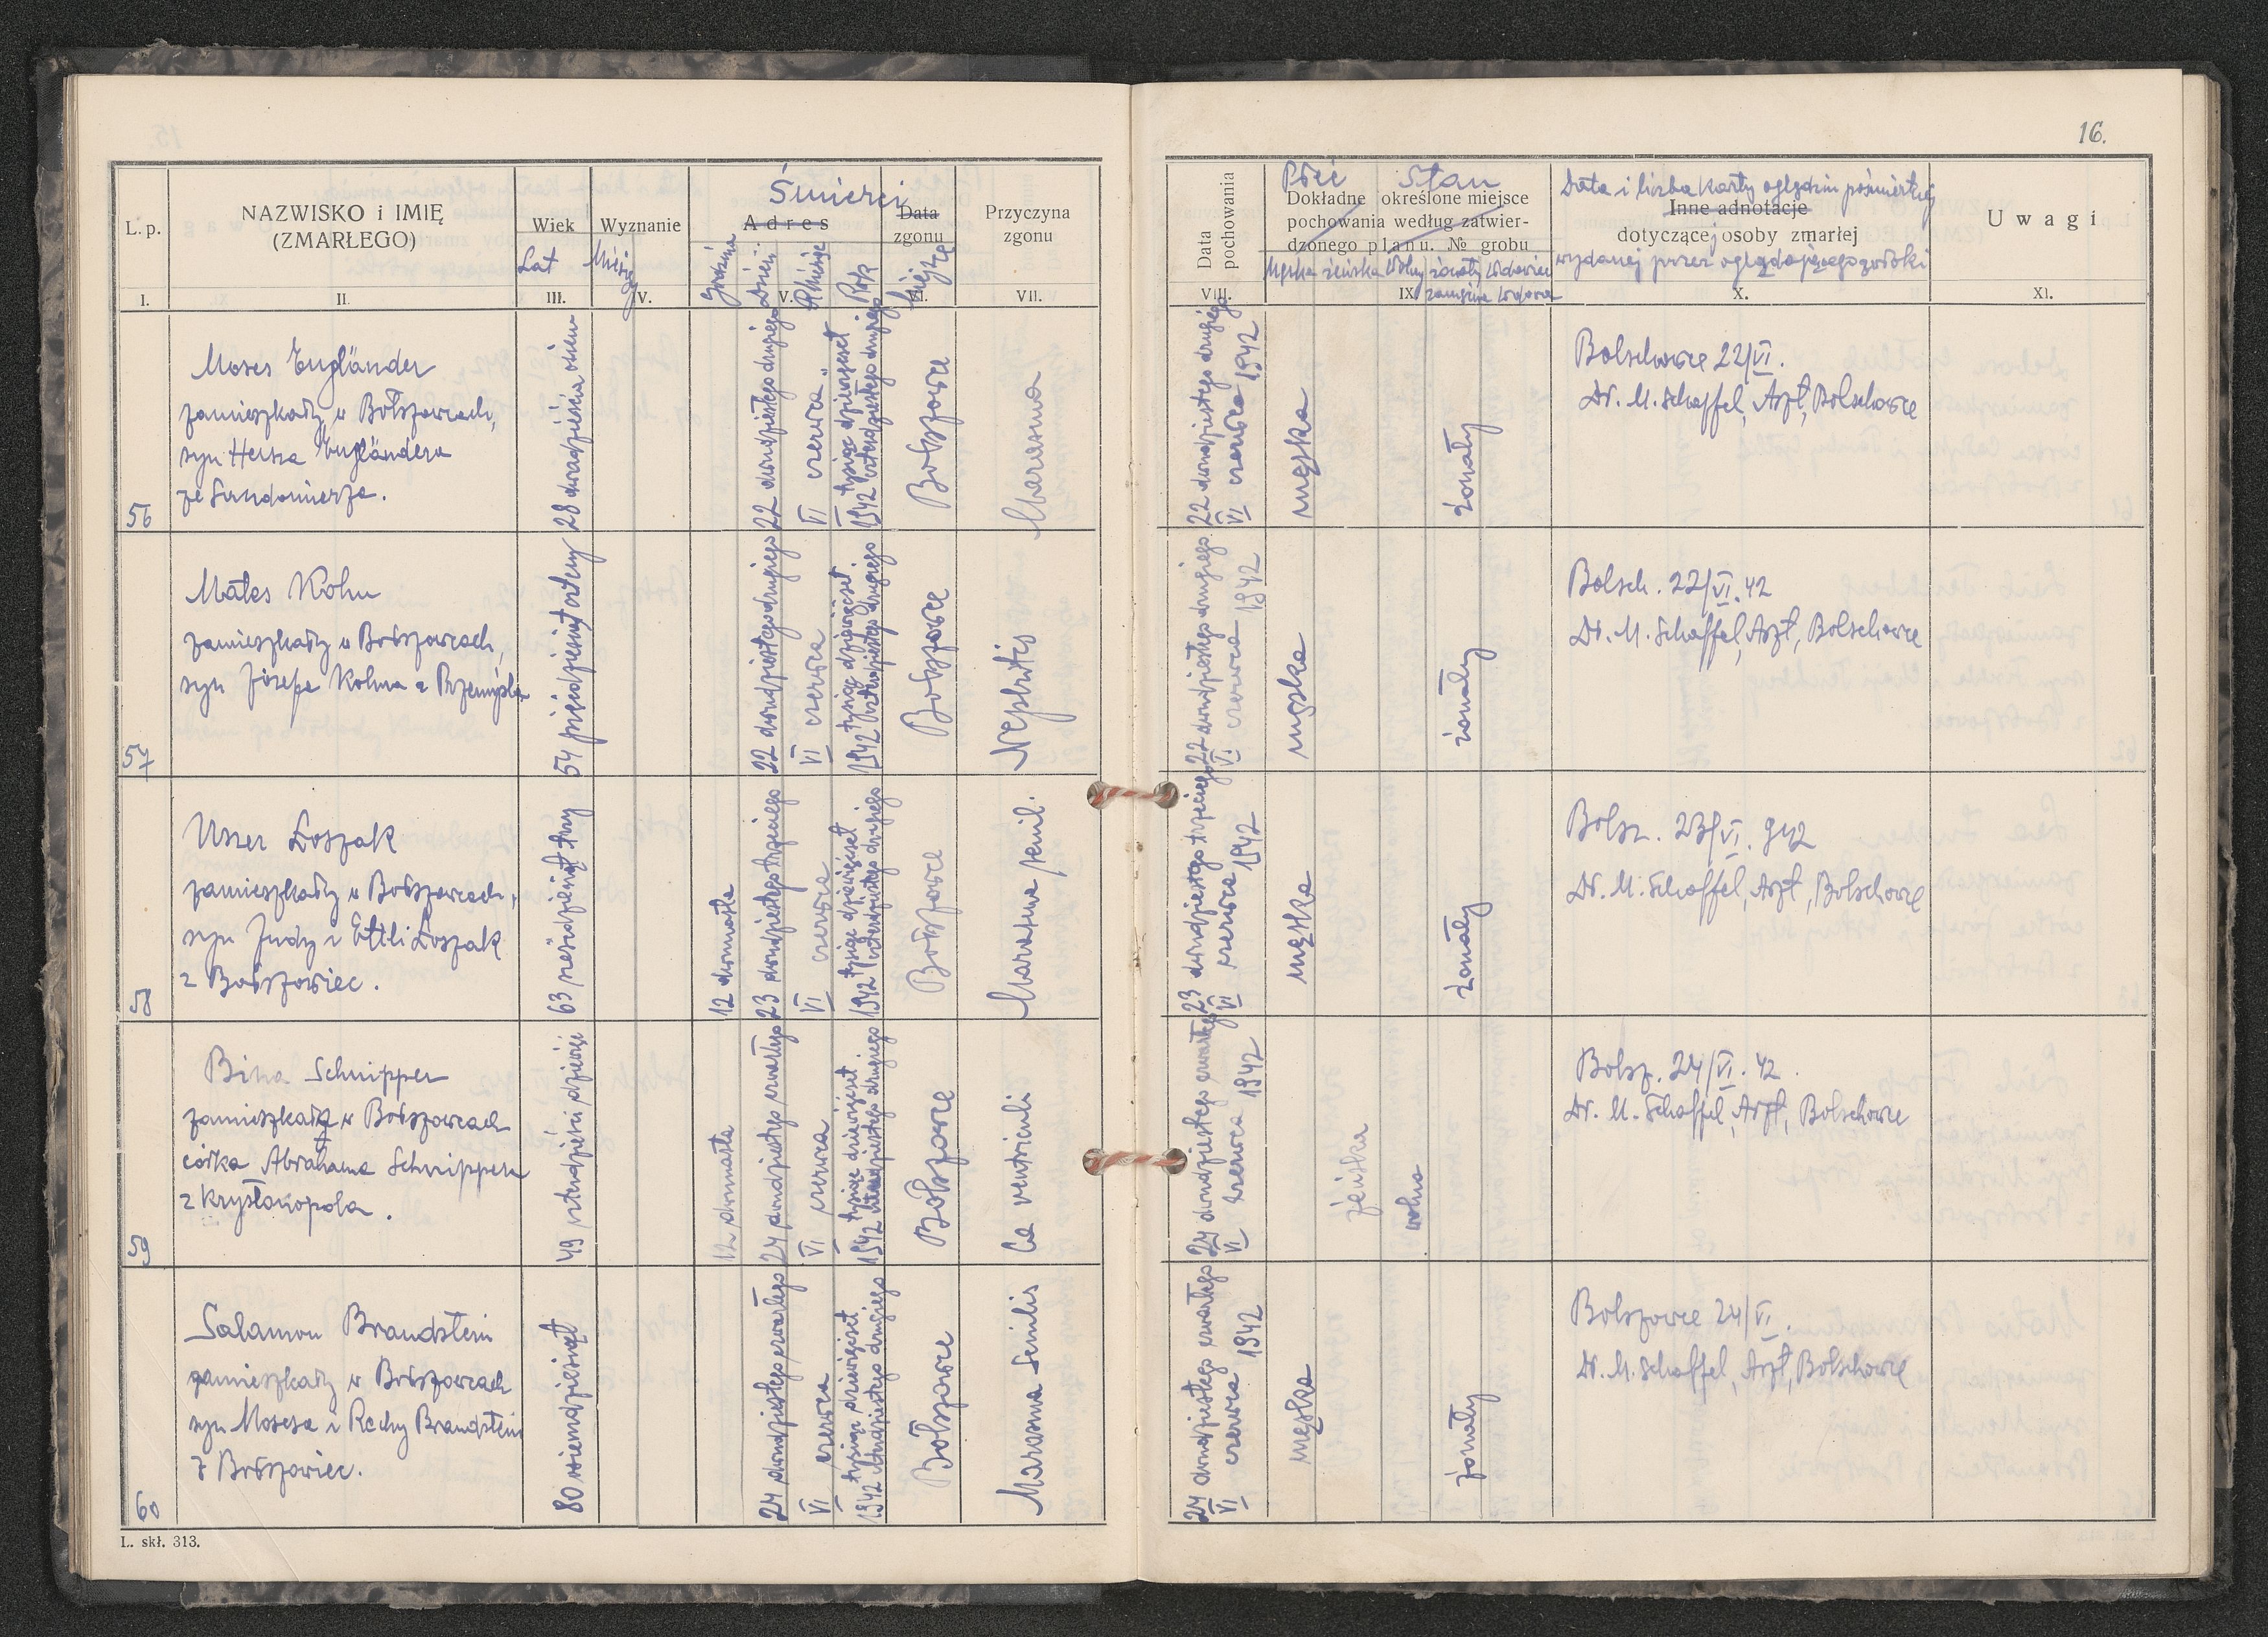 16.
L. p.
NAZWISKO i IMIĘ
(ZMARŁEGO)
Wiek
Lat
Wyznanie
Miesięcy
Śmierci
Adres
godzina
Dzień
Miesiąc
Rok
Data
zgonu
Miejsce
Przyczyna
zgonu
I.
II.
III.
IV.
V.
VI.
VII.
Data
pochowania
Płeć
Stan
Dokładne określone miejsce
pochowania według zatwier-
dzonego planu. № grobu
Męska
żeńska
Wolny
żonaty
Wdowiec
zamężna
Wdowa
Data i liczba karty oględzin pośmiertnej
Inne adnotacje
dotyczącej osoby zmarłej
wydanej przez oglądającego zwłoki
Uwagi
VIII.
IX
X.
XI.
56
Moses Engländer
zamieszkały w Bołszowcach,
syn Hersza Engländera
ze Sandomierza.
28 dwadzieścia osiem
22 dwudziestego drugiego
VI czerwca
tysiąc dziewięćset
1942 czterdziestego drugiego
Bołszowce
Marasmus
22 dwudziestego drugiego
VI czerwca 1942
męska
żonaty
Bolschowce 22/VI.
Dr. M. Schaffel, Arzt, Bolschowce
57
Mates Kohn
zamieszkały w Bołszowcach,
syn Józefa Kohna z Przemyśla
54 pięćdziesiąt cztery
22 dwudziestego drugiego
VI czerwca
tysiąc dziewięćset
1942 czterdziestego drugiego
Bołszowce
Nephritis
22 dwudziestego drugiego
VI czerwca 1942
męska
żonaty
Bolsch. 22/VI. 42
Dr. M. Schaffel, Arzt, Bolschowce
58
Uszer Łoszak
zamieszkały w Bołszowcach,
syn Judy i Ettli Łoszak
z Bołszowiec.
63 sześćdziesiąt trzy
12 dwunasta
23 dwudziestego trzeciego
VI czerwca
tysiąc dziewięćset
1942 czterdziestego drugiego
Bołszowce
Marasmus senil.
23 dwudziestego trzeciego
VI czerwca 1942
męska
żonaty
Bolsz. 23/VI. 942
Dr. M. Schaffel, Arzt, Bolschowce
59
Bina Schnipper
zamieszkała w Bołszowcach
córka Abrahama Schnippera
z Krystonopola.
49 czterdzieści dziewięć
12 dwunasta
24 dwudziestego czwartego
VI czerwca
tysiąc dziewięćset
1942 czterdziestego drugiego
Bołszowce
Ca ventriculi
24 dwudziestego czwartego
VI czerwca 1942
żeńska
wolna
Bolsz. 24/VI. 42.
Dr. M. Schaffel, Arzt, Bolschowce
60
Salamon Brandstein
zamieszkały w Bołszowcach
syn Mosesa i Rechy Brandstein
z Bołszowiec.
80 osiemdziesiąt
24 dwudziestego czwartego
VI czerwca
tysiąc dziewięćset
1942 czterdziestego drugiego
Bołszowce
Marasmus Senilis
24 dwudziestego czwartego
VI czerwca 1942
męska
żonaty
Bolszowce 24/VI.
Dr. M. Schaffel, Arzt, Bolschowce
L. skł. 313.